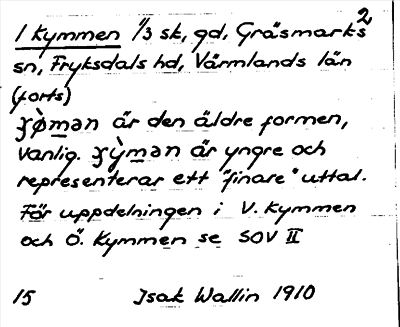 2
1 Kymmen 1/3 sk, gd, Gräsmarks
sn, Fryksdals hd, Värmlands län
(forts)
ɣø̀mən är den äldre formen,
vanlig. ɣỳmən är yngre och
representerar ett "finare" uttal.
För uppdelningen i V. Kymmen
och Ö. Kymmen se SOV II
15 Isak Wallin 1910